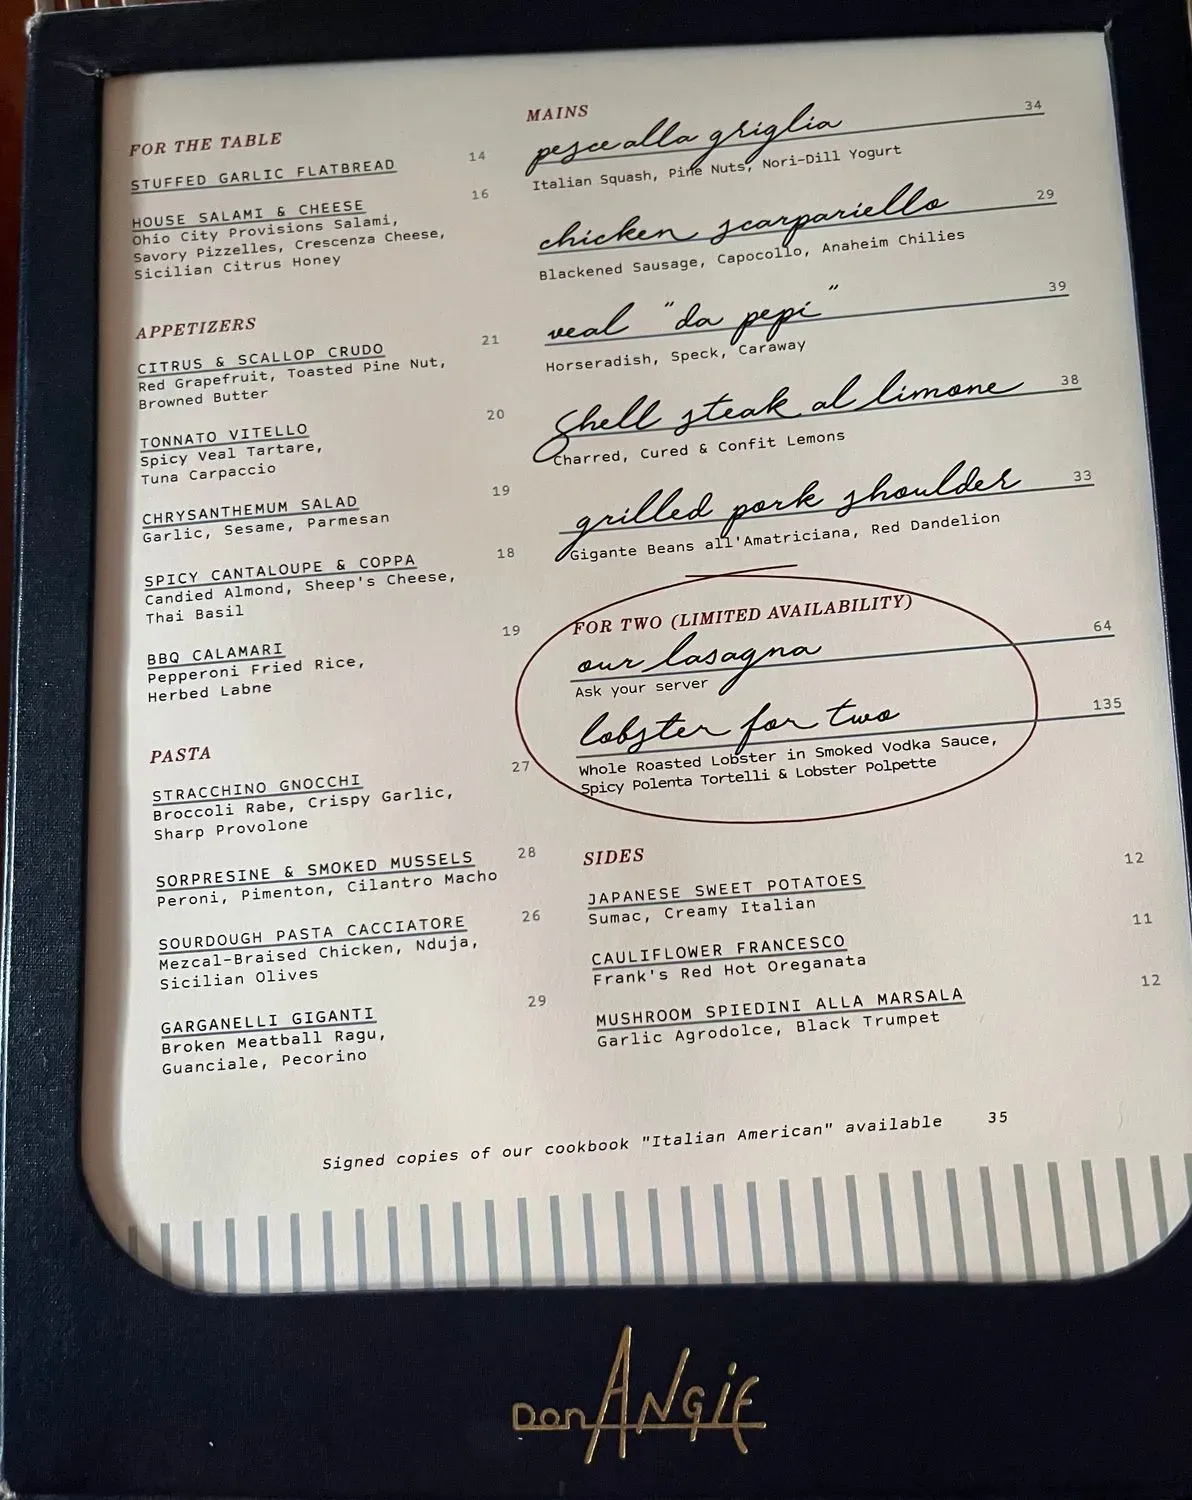 FOR THE TABLE
STUFFED GARLIC FLATBREAD 14
HOUSE SALAMI & CHEESE 16
Ohio City Provisions Salami,
Savory Pizzelles, Crescenza Cheese,
Sicilian Citrus Honey
APPETIZERS
CITRUS & SCALLOP CRUDO 21
Red Grapefruit, Toasted Pine Nut,
Browned Butter
TONNATO VITELLO 20
Spicy Veal Tartare,
Tuna Carpaccio
CHRYSANTHEMUM SALAD 19
Garlic, Sesame, Parmesan
SPICY CANTALOUPE & COPPA 18
Candied Almond, Sheep's Cheese,
Thai Basil
BBQ CALAMARI 19
Pepperoni Fried Rice,
Herbed Labne
PASTA
STRACCHINO GNOCCHI 27
Broccoli Rabe, Crispy Garlic,
Sharp Provolone
SORPRESINE & SMOKED MUSSELS 28
Peroni, Pimenton, Cilantro Macho
SOURDOUGH PASTA CACCIATORE 26
Mezcal-Braised Chicken, Nduja,
Sicilian Olives
GARGANELLI GIGANTI 29
Broken Meatball Ragu,
Guanciale, Pecorino
MAINS
pesce alla griglia 34
Italian Squash, Pine Nuts, Nori-Dill Yogurt
chicken scarpariello 29
Blackened Sausage, Capocollo, Anaheim Chilies
veal "da pepi" 39
Horseradish, Speck, Caraway
Shell steak al limone 38
Charred, Cured & Confit Lemons
grilled pork shoulder 33
Gigante Beans all'Amatriciana, Red Dandelion
FOR TWO (LIMITED AVAILABILITY)
our lasagna 64
Ask your server
lobster for two 135
Whole Roasted Lobster in Smoked Vodka Sauce,
Spicy Polenta Tortelli & Lobster Polpette
SIDES
JAPANESE SWEET POTATOES 12
Sumac, Creamy Italian
CAULIFLOWER FRANCESCO 11
Frank's Red Hot Oreganata
MUSHROOM SPIEDINI ALLA MARSALA 12
Garlic Agrodolce, Black Trumpet
Signed copies of our cookbook "Italian American" available 35
Don ANGIE